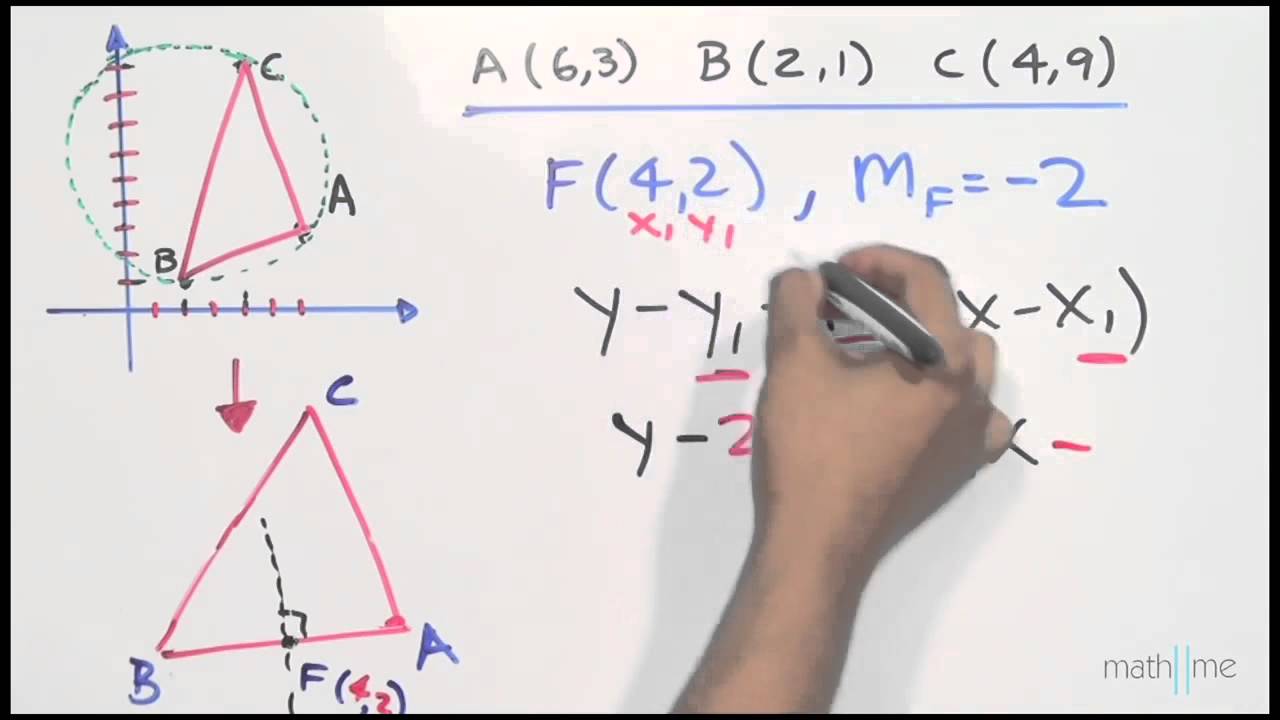 A(6,3) B(2,1) C(4,9)
F(4,2), mF=-2
x1 y1
y-y1 x-x1)
y-2 x-
C
A
B
C
B
A
F(4,2)
math||me